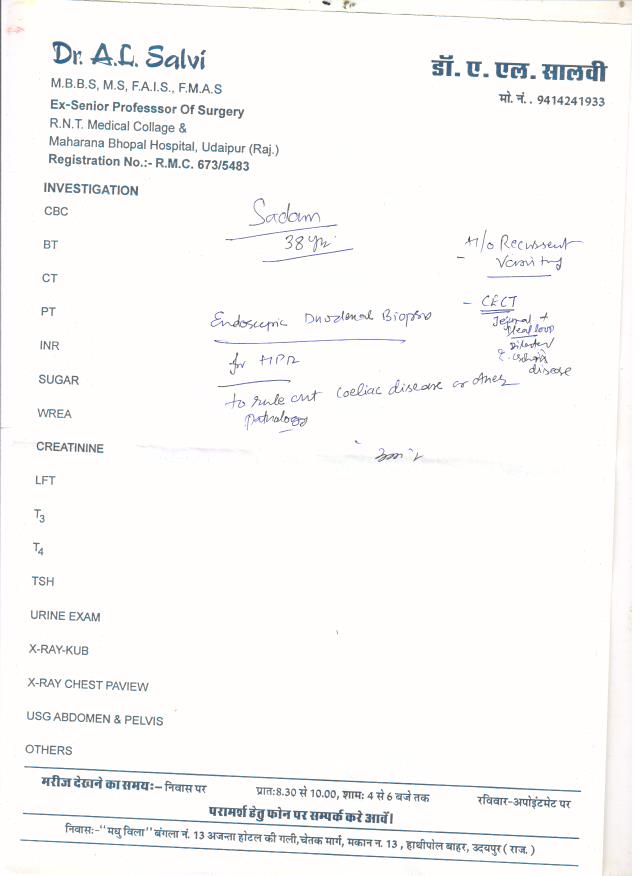 Dr. A.L. Salvi
M.B.B.S, M.S, F.A.I.S., F.M.A.S
Ex-Senior Professsor Of Surgery
R.N.T. Medical Collage &
Maharana Bhopal Hospital, Udaipur (Raj.)
Registration No.:- R.M.C. 673/5483
डॉ. ए. एल. सालवी
मो. नं. . 9414241933
INVESTIGATION
CBC
BT
CT
PT
INR
SUGAR
WREA
CREATININE
LFT
T3
T4
TSH
URINE EXAM
X-RAY-KUB
X-RAY CHEST PAVIEW
USG ABDOMEN & PELVIS
OTHERS
Sadam
38 yr
H/o Recussent
Vomiting
- CECT
Jejunal +
Ileal loop
disease
Endoscopic Duodenal Biopsy
for HPR
to rule out Coeliac disease or
pathology
मरीज देखने का समय:– निवास पर प्रात:8.30 से 10.00, शाम: 4 से 6 बजे तक रविवार-अपोइंटमेट पर
परामर्श हेतु फोन पर सम्पर्क करे आवें।
निवास:-"मधु विला" बंगला नं. 13 अजन्ता होटल की गली,चेतक मार्ग, मकान न. 13 , हाथीपोल बाहर, उदयपुर ( राज. )